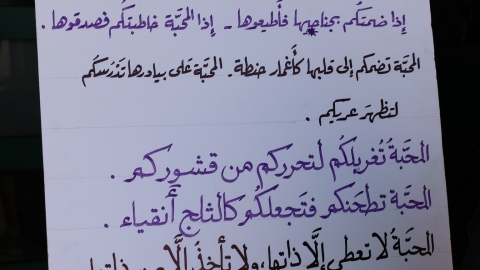 إذا ضمتكُم بجناحيها فأطيعوها - إذا المحبّة خاطبتكُم فصدقوها .
المحبّة تضمكم إلى قلبها كأغمار حنطة - المحبّة عَلى بيادرها تَدْرُسكُم
لتظهرَ عريكم .
المحبّةُ تُغربلكُم لتحرركم من قشوركم .
المحبَّة تطحَنكم فتَجعلكُم كالثلج أنقياء .
المحبّةُ لا تعطي إلَّا ذاتها، ولا تأخذُ إلَّا من ذاتها